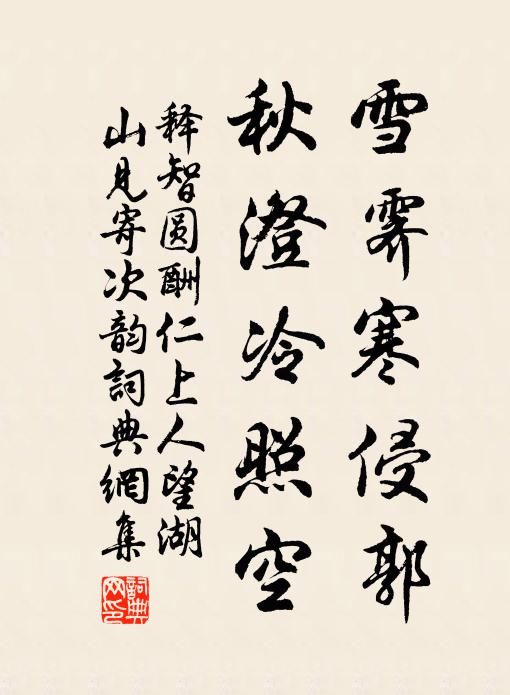 雪霽寒侵郭
秋澄冷照空
释智圆酬仁上人望湖
山見寄次韵詞典網集
詞典网印